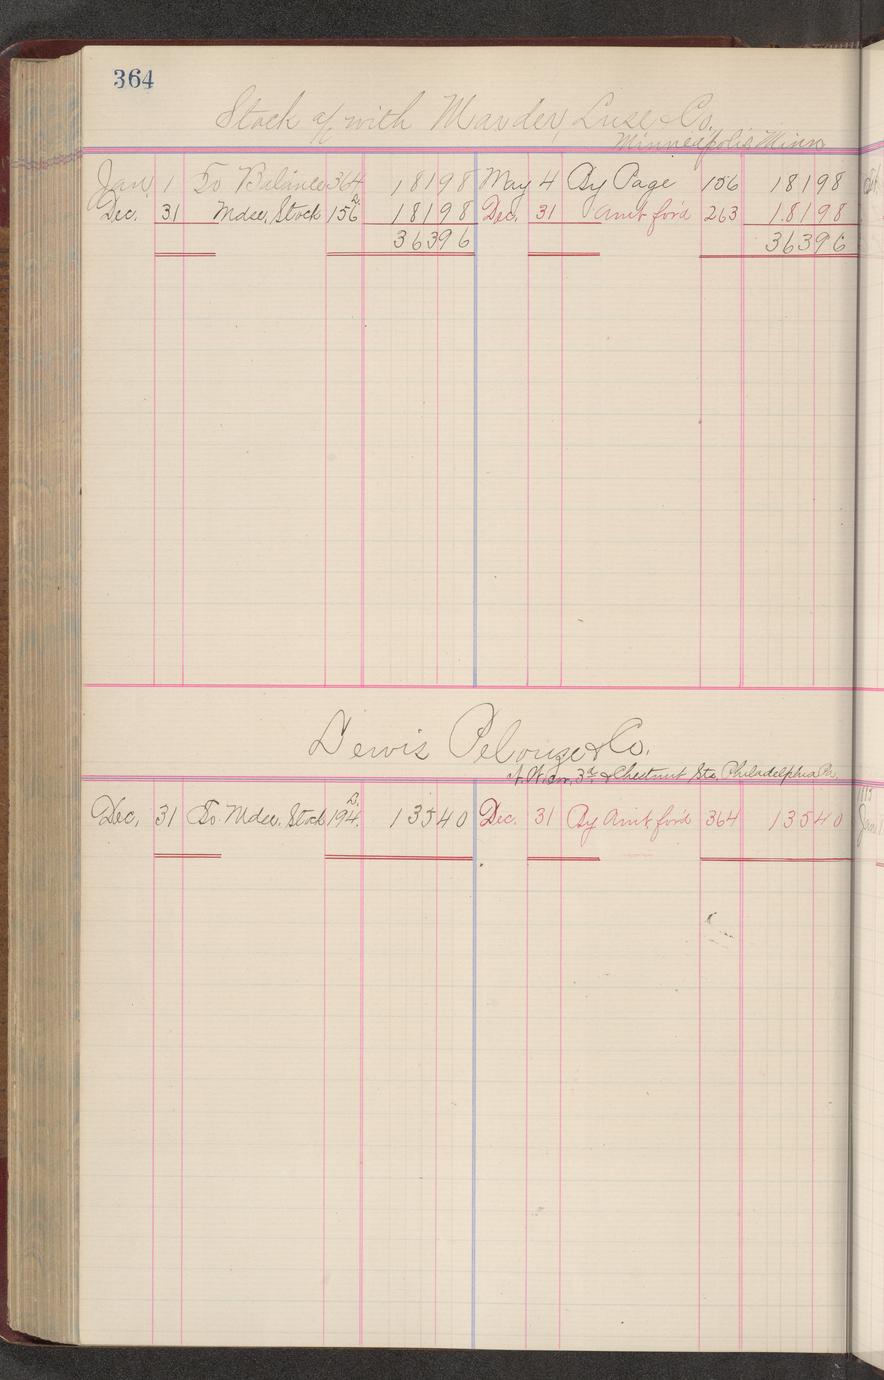 364
Stock a/c with Marder, Luse & Co.
Minneapolis Minn
Jan. 1 To Balance 364 18198 May 4 By Page 156 18198
Dec. 31 Mdse, Stock 156 18198 Dec. 31 Amt for'd 263 18198
36396 36396
Lewis Pelouze & Co.
N.W. cor, 3rd & Chestnut Sts, Philadelphia Pa.
Dec, 31 To Mdse, Stock 194 13540 Dec. 31 By Amt, for'd 364 13540